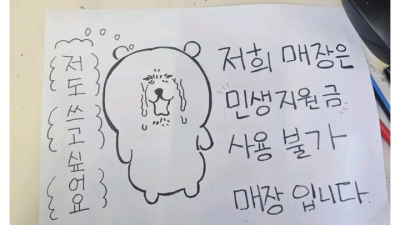 저도 쓰고 싶어요
저희 매장은
민생지원금
사용 불가
매장 입니다.